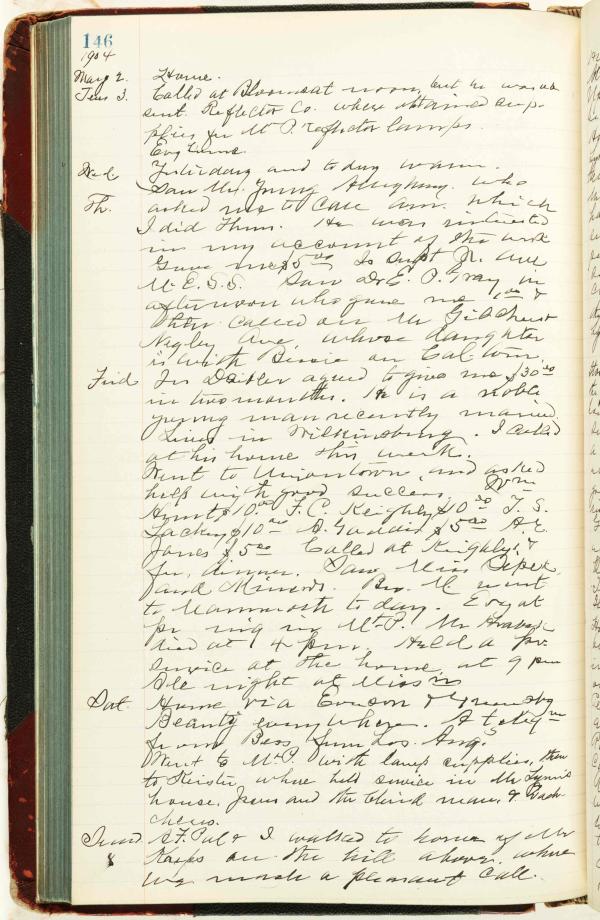 146
1904
May 2. Home.
Tues 3. Called at Bloom at noon, but he was ab
sent. Reflector Co. where obtained sup-
plies for Mt P. reflector lamps.
Evg Home.
Wed. Yesterday and to day warm.
Saw Mr. Young Allegheny. who
Th. asked me to call him. which
I did Thurs. He was interested
in my account of the work
Gave me $5 00 to supt
M. E. S. S. Saw Dr E. P. Gray in
afternoon who gave me 1 00 &
then called on Mr Gilchrist
Negley Ave, whose daughter
is with Bessie on Cal tour.
Frid. agreed to give me $30 00
in two months. He is a noble
young man recently married.
Lives in Wilkinsburg. I called
at his home this week.
Went to Uniontown, and asked
help with good success. Wm
Hunt $10. 00 F. C. Keighly $10 00 T. S.
Lackey $10 00 A. Gaddis $5 00 A. E.
Jones $5 00 Called at Keighly's &
for dinner. Saw Miss
and Minerds. Bro. M went
to Mammoth to day. Evg at
pr mg in Mt P. Mr
died at 4 pm. Held a pr.
service at the home at 9 pm
All night at
Sat. Home via Evrson & Greensbg
Beauty everywhere. A telegm
from Bess from Los Ang.
Went to Mt P. with lamp supplies, then
to Keister, where held service in Mr
house. Jesus and the blind man, &
Sund. & I walked to home of Mr
8 on the hill above, where
we made a pleasant call.